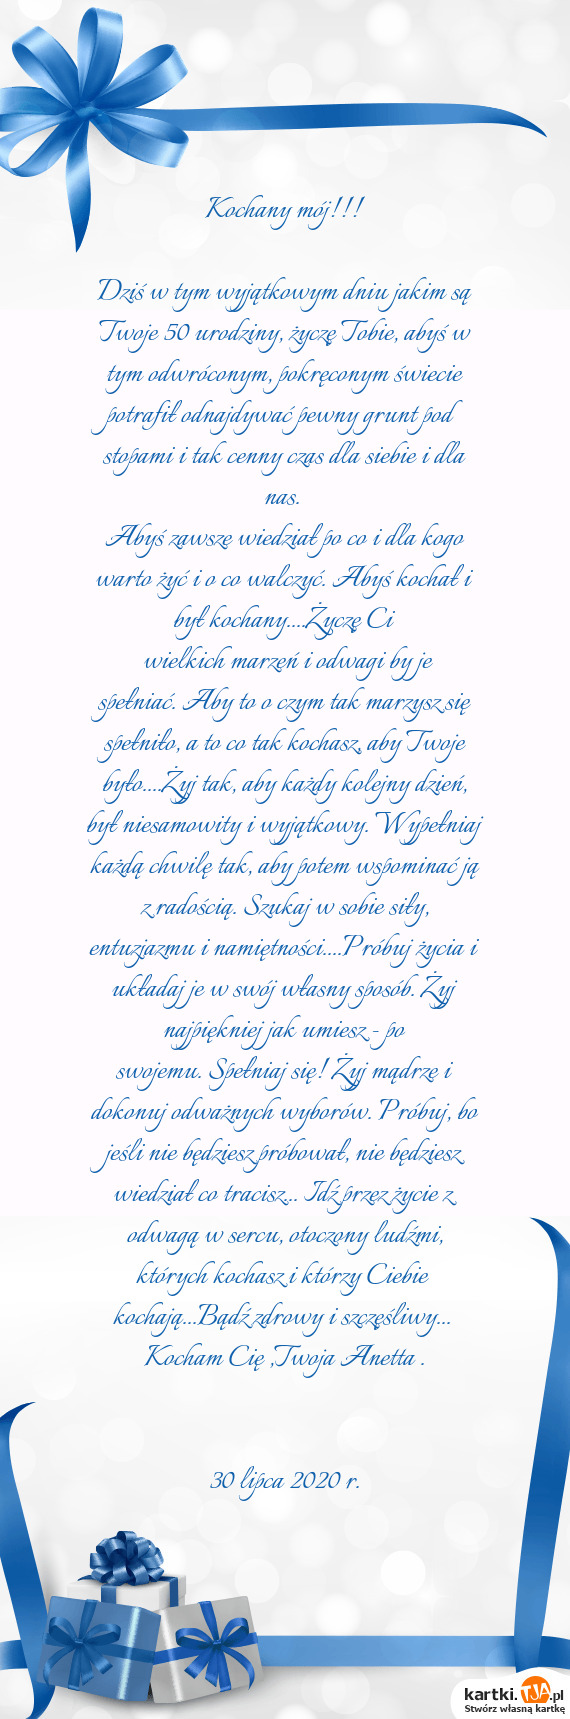 Kochany mój!!!
Dziś w tym wyjątkowym dniu jakim są
Twoje 50 urodziny, życzę Tobie, abyś w
tym odwróconym, pokręconym świecie
potrafił odnajdywać pewny grunt pod
stopami i tak cenny czas dla siebie i dla
nas.
Abyś zawsze wiedział po co i dla kogo
warto żyć i o co walczyć. Abyś kochał i
był kochany....Życzę Ci
wielkich marzeń i odwagi by je
spełniać. Aby to o czym tak marzysz się
spełniło, a to co tak kochasz, aby Twoje
było....Żyj tak, aby każdy kolejny dzień,
był niesamowity i wyjątkowy. Wypełniaj
każdą chwilę tak, aby potem wspominać ją
z radością. Szukaj w sobie siły,
entuzjazmu i namiętności....Próbuj życia i
układaj je w swój własny sposób. Żyj
najpiękniej jak umiesz - po
swojemu. Spełniaj się! Żyj mądrze i
dokonuj odważnych wyborów. Próbuj, bo
jeśli nie będziesz próbował, nie będziesz
wiedział co tracisz... Idź przez życie z
odwagą w sercu, otoczony ludźmi,
których kochasz i którzy Ciebie
kochają...Bądź zdrowy i szczęśliwy...
Kocham Cię ,Twoja Anetta .
30 lipca 2020 r.
kartki.TJA.pl
Stwórz własną kartkę